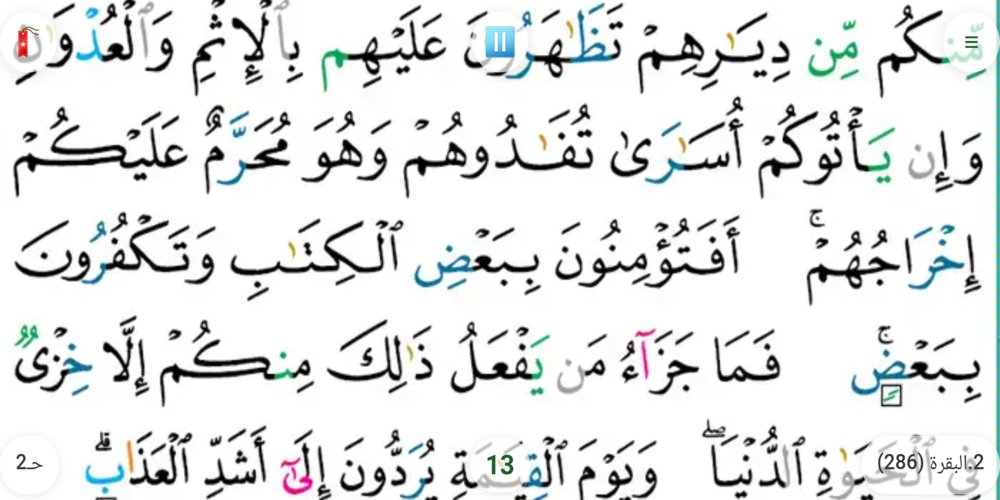 مِّنكُم مِّن دِيَـٰرِهِمْ تَظَـٰهَرُونَ عَلَيْهِم بِٱلْإِثْمِ وَٱلْعُدْوَٰنِ
وَإِن يَأْتُوكُمْ أُسَـٰرَىٰ تُفَـٰدُوهُمْ وَهُوَ مُحَرَّمٌ عَلَيْكُمْ
إِخْرَاجُهُمْ ۚ أَفَتُؤْمِنُونَ بِبَعْضِ ٱلْكِتَـٰبِ وَتَكْفُرُونَ
بِبَعْضٍ ۚ فَمَا جَزَآءُ مَن يَفْعَلُ ذَٰلِكَ مِنكُمْ إِلَّا خِزْىٌ
فِى ٱلْحَيَوٰةِ ٱلدُّنْيَا ۖ وَيَوْمَ ٱلْقِيَـٰمَةِ يُرَدُّونَ إِلَىٰٓ أَشَدِّ ٱلْعَذَابِ ۗ
2.البقرة (286)
13
حـ2